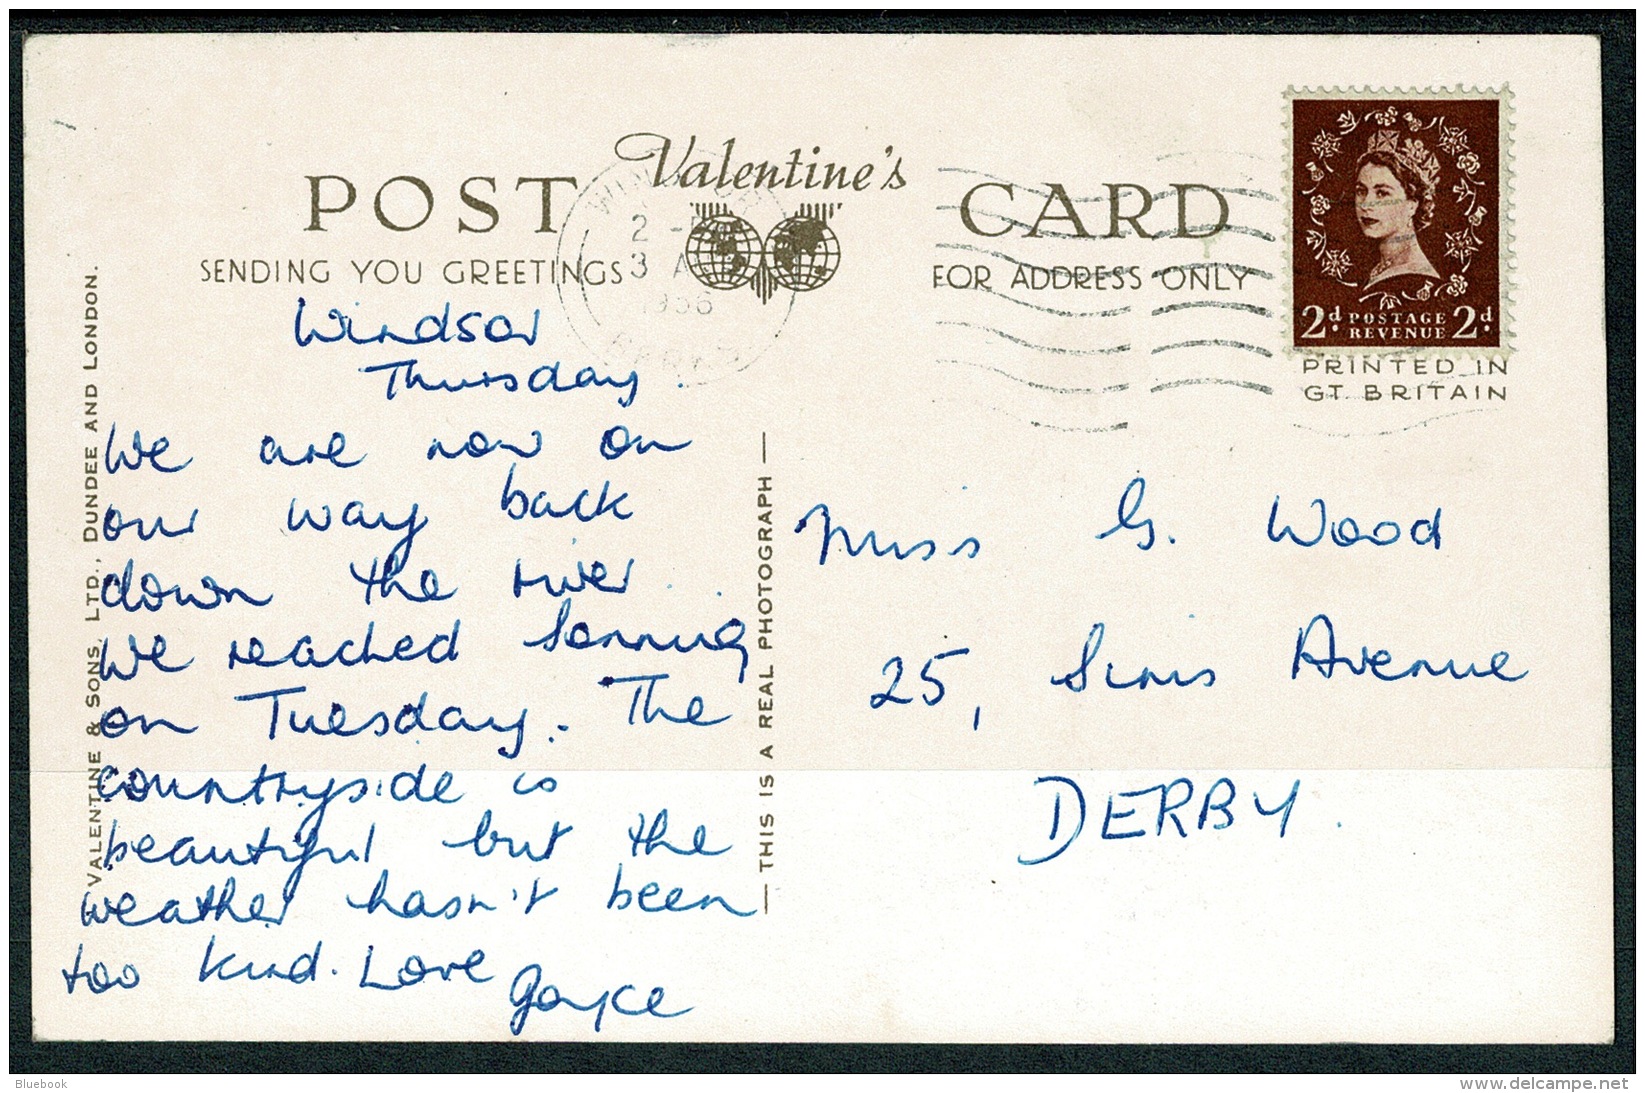 Valentine's
POST CARD
SENDING YOU GREETINGS
FOR ADDRESS ONLY
2
3 A
1956
2d. POSTAGE 2d.
REVENUE
PRINTED IN
GT. BRITAIN
VALENTINE & SONS, LTD., DUNDEE AND LONDON.
THIS IS A REAL PHOTOGRAPH
Windsor
Thursday.
We are now on
our way back
down the river.
We reached Sonning
on Tuesday. The
countryside is
beautiful but the
weather hasn't been
too kind. Love
Joyce
Miss G. Wood
25, Sims Avenue
DERBY.
Bluebook
www.delcampe.net